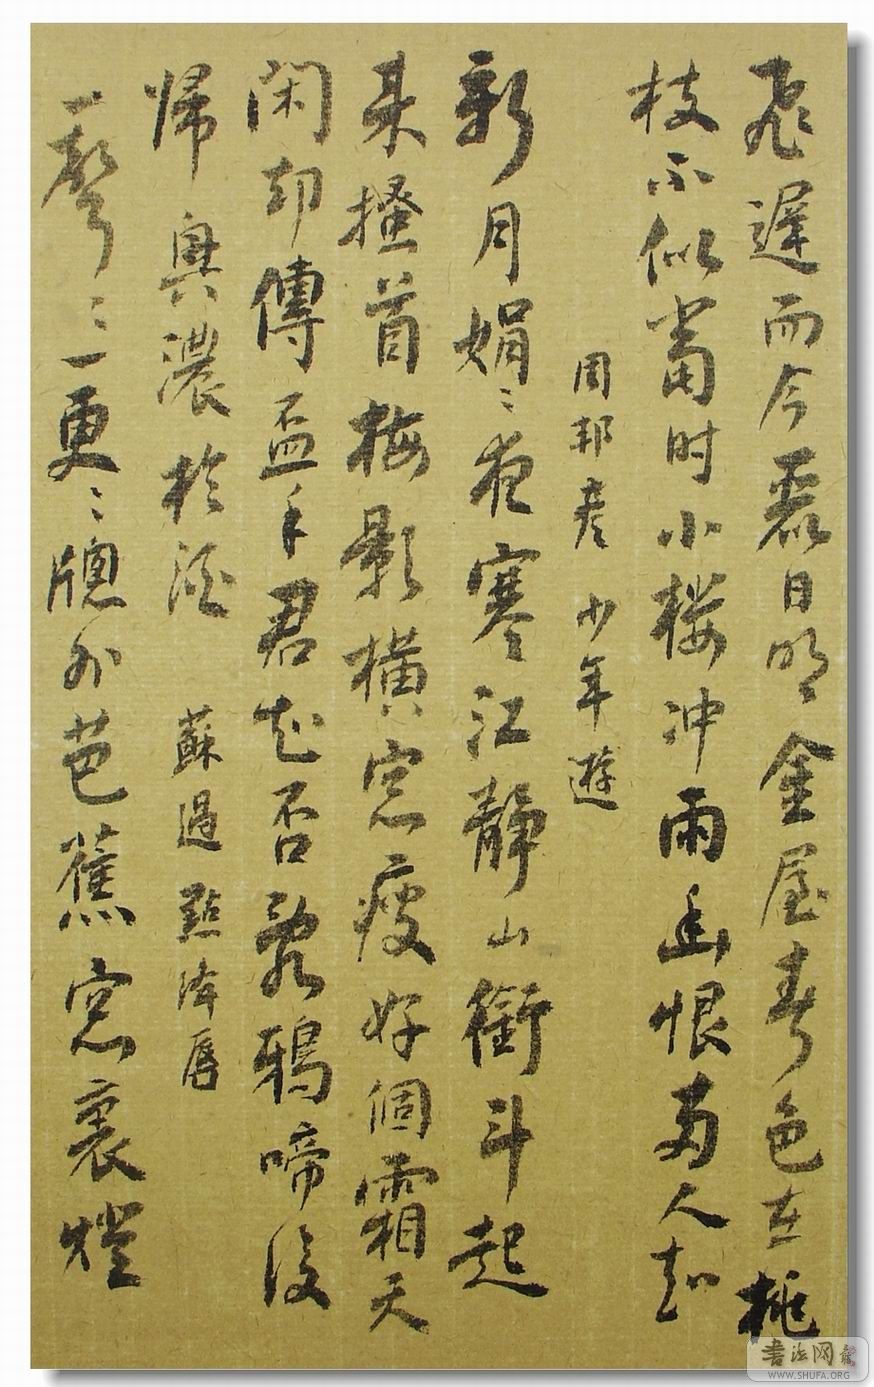 飛遲而今麗日明金屋春色在桃
枝不似當时小楼冲雨幽恨兩人知
周邦彦 少年遊
新月娟〻夜寒江静山銜斗起
来搔首梅影横窓瘦好個霜天
閑却傳盃手君知否亂鴉啼後
帰興濃於酒
蘇過 點絳唇
一聲〻一更〻牕外芭蕉窓裏燈
書法网
WWW.SHUFA.ORG